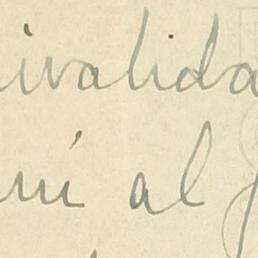 ivalida
ni al